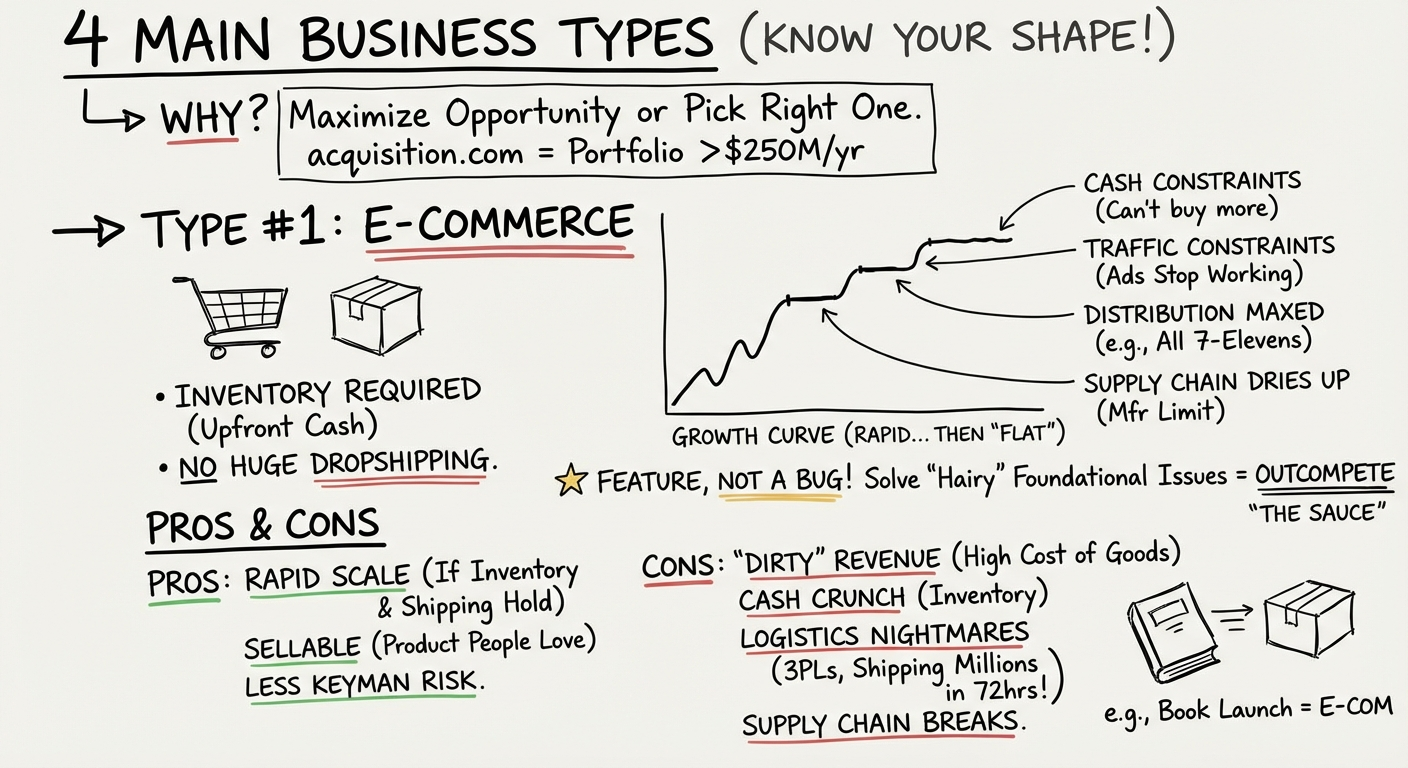 4 MAIN BUSINESS TYPES (KNOW YOUR SHAPE!)
WHY?
Maximize Opportunity or Pick Right One.
acquisition.com = Portfolio >$250M/yr
TYPE #1: E-COMMERCE
• INVENTORY REQUIRED
(Upfront Cash)
• NO HUGE DROPSHIPPING.
CASH CONSTRAINTS
(Can't buy more)
TRAFFIC CONSTRAINTS
(Ads Stop Working)
DISTRIBUTION MAXED
(e.g., All 7-Elevens)
SUPPLY CHAIN DRIES UP
(Mfr Limit)
GROWTH CURVE (RAPID... THEN "FLAT")
FEATURE, NOT A BUG! Solve "Hairy" Foundational Issues = OUTCOMPETE
"THE SAUCE"
PROS & CONS
PROS: RAPID SCALE (If Inventory
& Shipping Hold)
SELLABLE (Product People Love)
LESS KEYMAN RISK.
CONS: "DIRTY" REVENUE (High Cost of Goods)
CASH CRUNCH (Inventory)
LOGISTICS NIGHTMARES
(3PLs, Shipping Millions
in 72hrs!)
SUPPLY CHAIN BREAKS.
e.g., Book Launch = E-COM